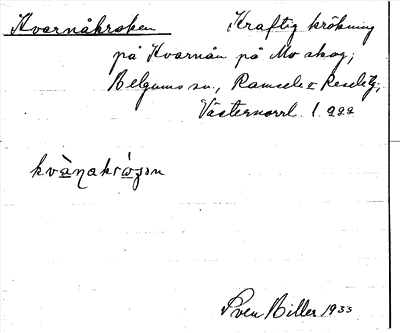 Kvarnåkroken Kraftig krökning
på Kvarnån på Mo skog;
Helgums sn, Ramsele o Resele tg,
Västernorrl. l.
kvànakrẁo
Sven Hiller 1933